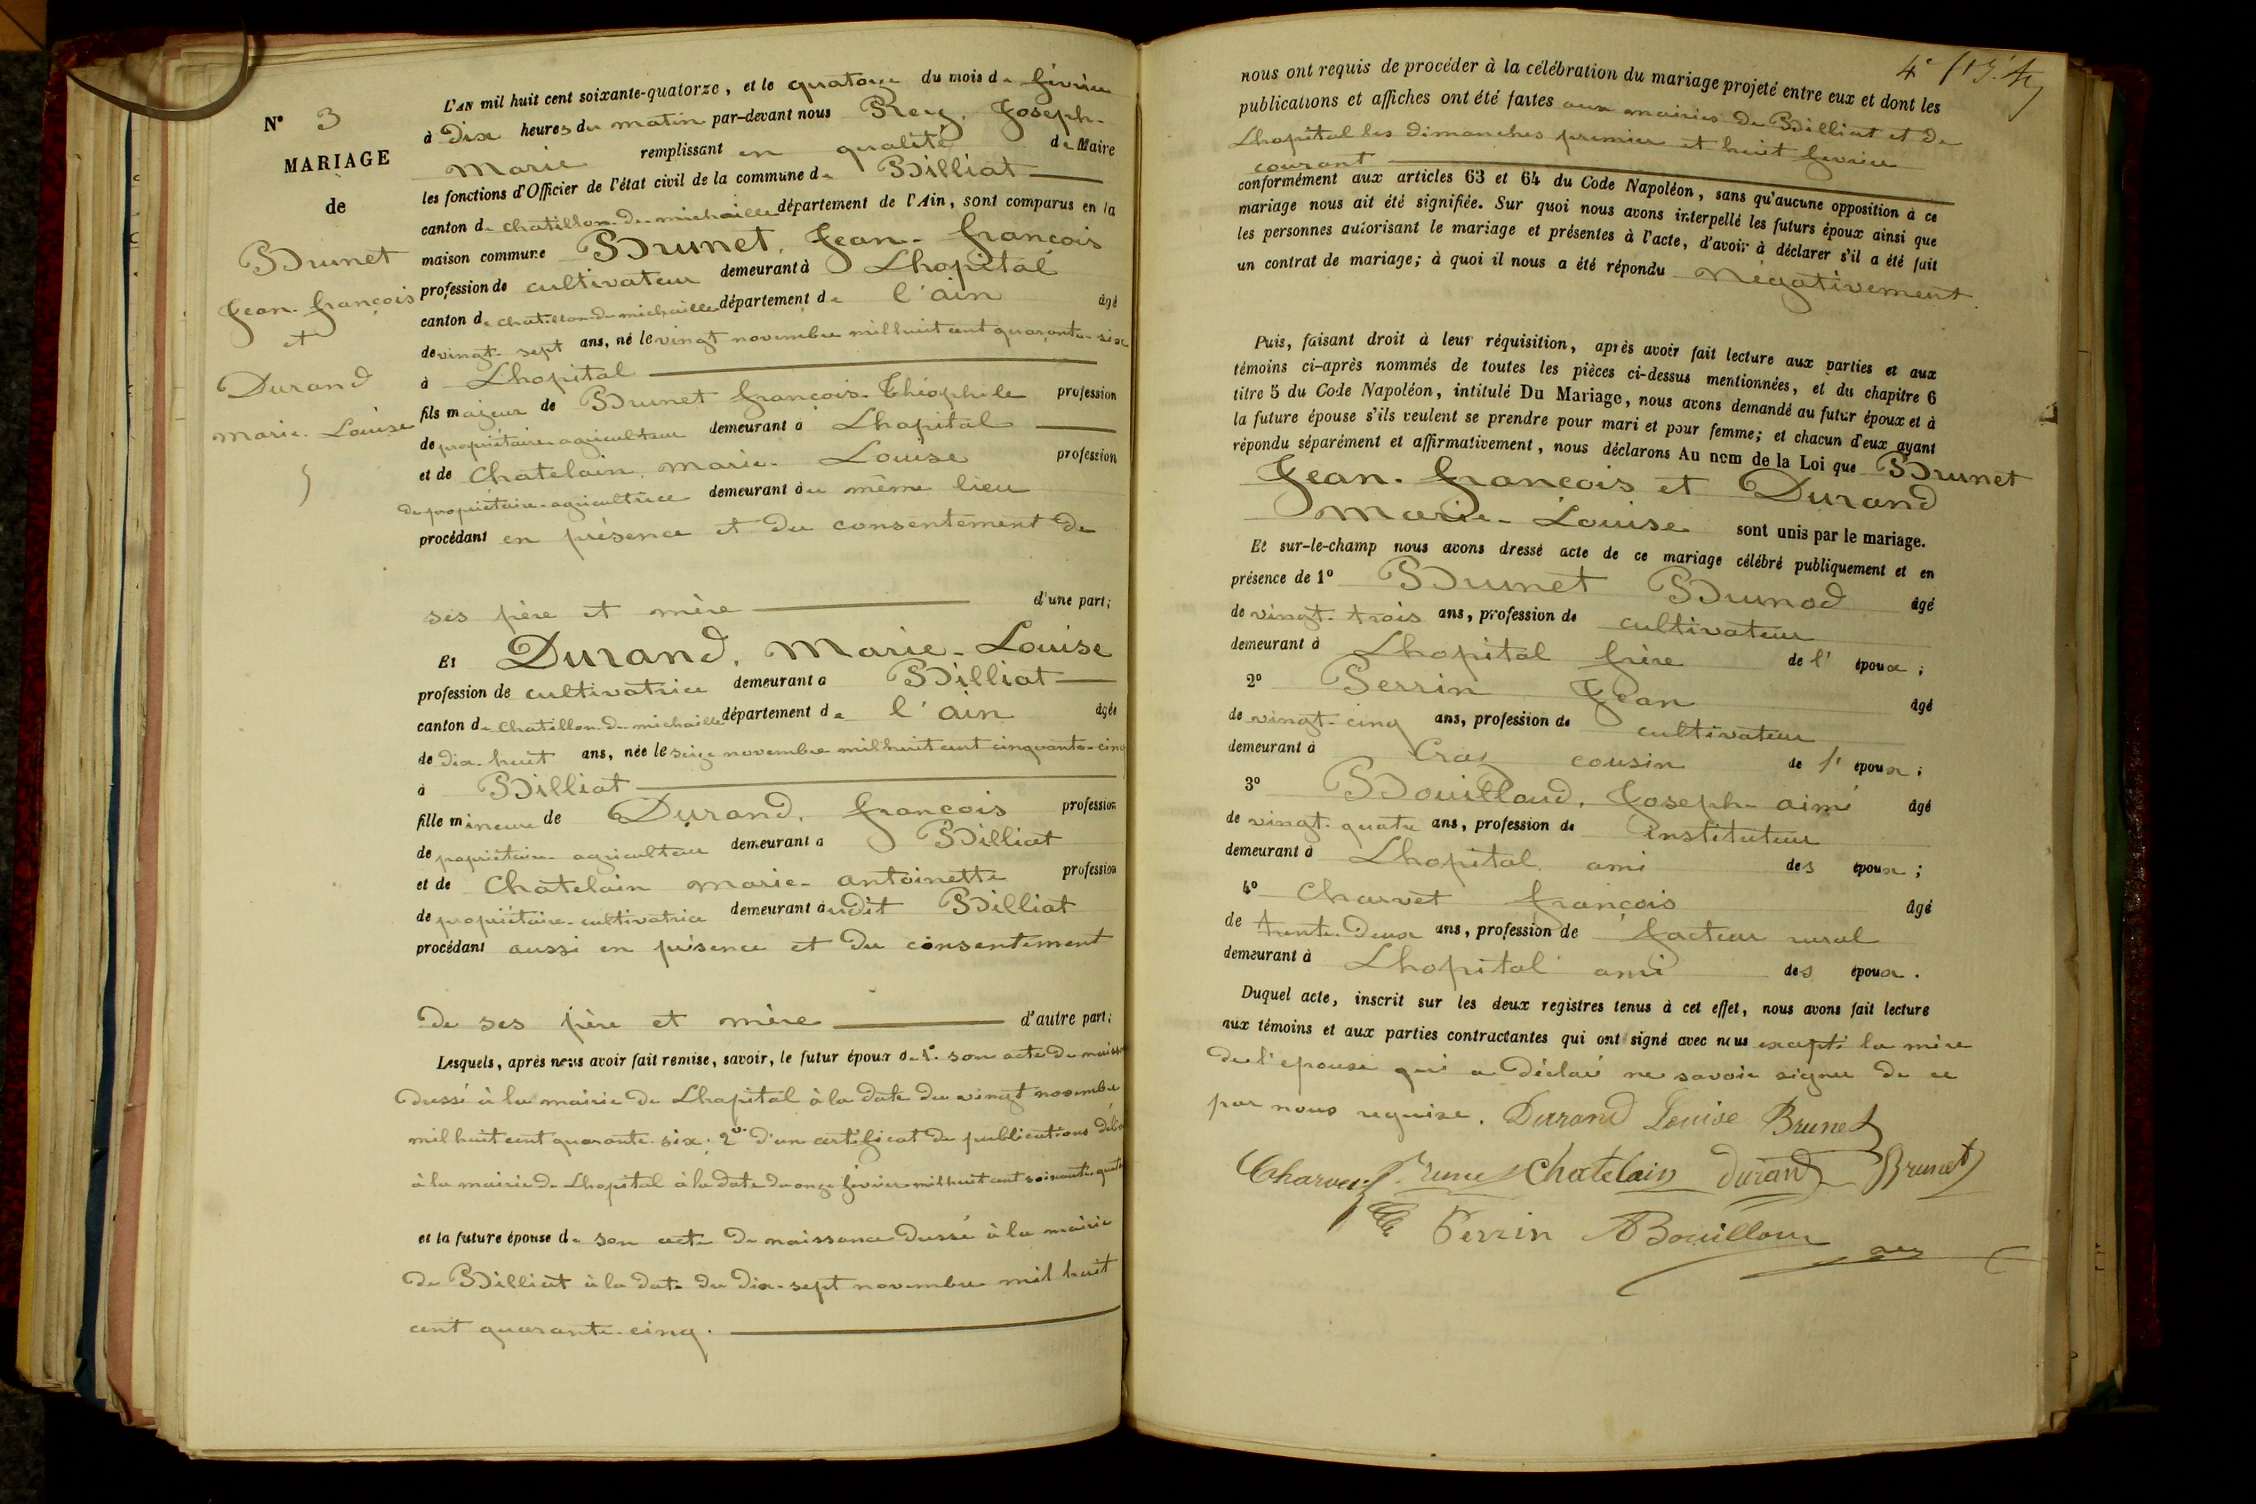 N° 3
MARIAGE
de
Brunet
Jean-françois
et
Durand
Marie-Louise
L'AN mil huit cent soixante-quatorze, et le quatorze du mois de février
à Dix heures du matin par-devant nous Rey, Joseph-
Marie remplissant en qualité de Maire
les fonctions d'Officier de l'état civil de la commune de Billiat
canton de chatillon-de-michaille département de l'Ain, sont comparus en la
maison commune Brunet, Jean-françois
profession de cultivateur demeurant à Lhopital
canton de chatillon-de-michaille département de l'ain âgé
de vingt-sept ans, né le vingt novembre mil huit cent quarante-six
à Lhopital
fils majeur de Brunet françois-Théophile profession
de propriétaire-agriculteur demeurant à Lhopital
et de Chatelain, marie-Louise profession
de propriétaire-agricultrice demeurant au même lieu
procédant en présence et du consentement de
ses père et mère d'une part;
Et Durand, Marie-Louise
profession de cultivatrice demeurant à Billiat
canton de chatillon-de-michaille département de l'ain âgée
de dix-huit ans, née le seize novembre mil huit cent cinquante-cinq
à Billiat
fille mineure de Durand, françois profession
de propriétaire-agriculteur demeurant à Billiat
et de Chatelain marie-antoinette profession
de propriétaire-cultivatrice demeurant audit Billiat
procédant aussi en présence et du consentement
de ses père et mère d'autre part;
Lesquels, après nous avoir fait remise, savoir, le futur époux de 1° son acte de naissance
dressé à la mairie de Lhopital à la date du vingt novembre
mil huit cent quarante-six; 2° d'un certificat de publications délivré
à la mairie de Lhopital à la date du onze février mil huit cent soixante-quatorze
et la future épouse de son acte de naissance dressé à la mairie
de Billiat à la date du dix-sept novembre mil huit
cent quarante-cinq.
nous ont requis de procéder à la célébration du mariage projeté entre eux et dont les
publications et affiches ont été faites aux mairies de Billiat et de
Lhopital les dimanches premier et huit février
courant
conformément aux articles 63 et 64 du Code Napoléon, sans qu'aucune opposition à ce
mariage nous ait été signifiée. Sur quoi nous avons interpellé les futurs époux ainsi que
les personnes autorisant le mariage et présentes à l'acte, d'avoir à déclarer s'il a été fait
un contrat de mariage; à quoi il nous a été répondu Négativement.
Puis, faisant droit à leur réquisition, après avoir fait lecture aux parties et aux
témoins ci-après nommés de toutes les pièces ci-dessus mentionnées, et du chapitre 6
titre 5 du Code Napoléon, intitulé Du Mariage, nous avons demandé au futur époux et à
la future épouse s'ils veulent se prendre pour mari et pour femme; et chacun d'eux ayant
répondu séparément et affirmativement, nous déclarons Au nom de la Loi que Brunet
Jean-françois et Durand
Marie-Louise sont unis par le mariage.
Et sur-le-champ nous avons dressé acte de ce mariage célébré publiquement et en
présence de 1° Brunet Brunod âgé
de vingt-trois ans, profession de cultivateur
demeurant à Lhopital frère de l'époux;
2° Perrin Jean âgé
de vingt-cinq ans, profession de cultivateur
demeurant à Craz cousin de l'époux;
3° Bouilloud, Joseph-aimé âgé
de vingt-quatre ans, profession de instituteur
demeurant à Lhopital ami des époux;
4° Charvet françois âgé
de trente-deux ans, profession de facteur rural
demeurant à Lhopital ami des époux.
Duquel acte, inscrit sur les deux registres tenus à cet effet, nous avons fait lecture
aux témoins et aux parties contractantes qui ont signé avec nous excepté la mère
de l'epouse qui a déclaré ne savoir signer de ce
par nous requise. Durand Louise Brunet
Charvet Brunet Chatelain Durand Brunet
Perrin ABouilloud Rey